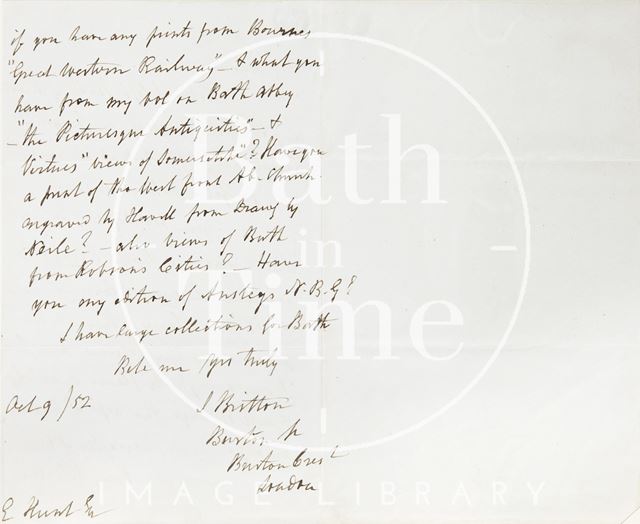 if you have any prints from Bournes
"Great Western Railway" – & what you
have from my vol on Bath Abbey
– "the Picturesque Antiquities" – &
Virtues "views of Somersetshe"? Have you
a print of the West front Ab. Church
engraved by Havell from Drawg by
– also views of Bath
from Robson's Cities? – Have
you my edition of Ansteys N.B.G?
I have large collections for Bath
Bele me yrs truly
Oct 9 /52
J Britton
Burton St
Burton Crest
London
E Hunt Eq
Bath
in
Time
IMAGE LIBRARY